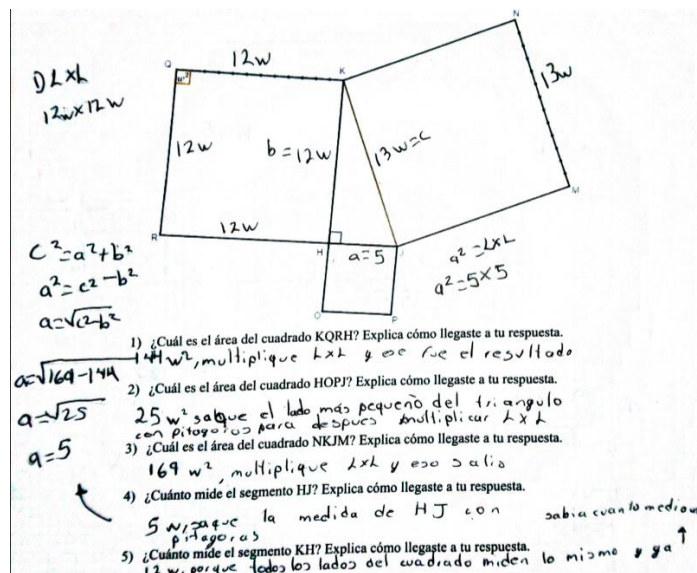 N
Q
12w
K
DLXL
12w×12w
w²
13w
12w
b=12w
13w=c
M
R
12w
H
a=5
J
a²=LXL
a²=5×5
C²=a²+b²
a²=c²-b²
a=√c²-b²
O
P
1) ¿Cuál es el área del cuadrado KQRH? Explica cómo llegaste a tu respuesta.
144w², multiplique LXL y ese fue el resultado
a=√169-144
2) ¿Cuál es el área del cuadrado HOPJ? Explica cómo llegaste a tu respuesta.
a=√25
25w² saque el lado más pequeño del triangulo
con pitagoras para despues multiplicar LXL
3) ¿Cuál es el área del cuadrado NKJM? Explica cómo llegaste a tu respuesta.
a=5
169 w², multiplique LXL y eso salio
4) ¿Cuánto mide el segmento HJ? Explica cómo llegaste a tu respuesta.
5w, saque la medida de HJ con
pitagoras
sabia cuanto median
5) ¿Cuánto mide el segmento KH? Explica cómo llegaste a tu respuesta.
12w, porque todos los lados del cuadrado miden lo mismo y ya